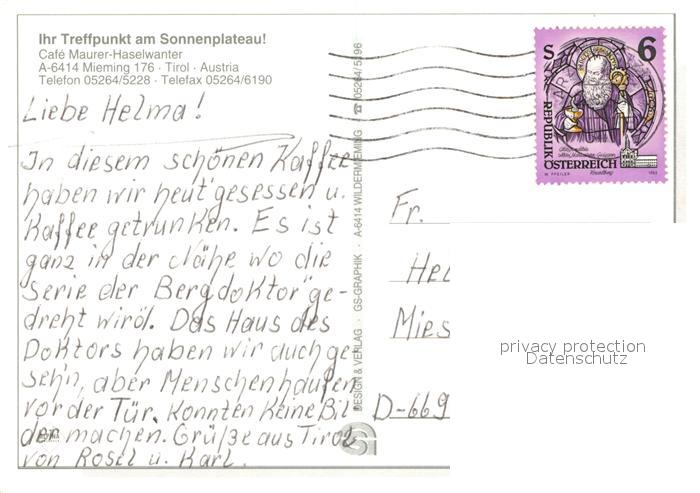 Ihr Treffpunkt am Sonnenplateau!
Café Maurer-Haselwanter
A-6414 Mieming 176 · Tirol · Austria
Telefon 05264/5228 · Telefax 05264/6190
Liebe Helma!
In diesem schönen Kaffee
haben wir heut gesessen u.
Kaffee getrunken. Es ist
ganz in der Nähe wo die
Serie der Bergdoktor" ge-
dreht wird. Das Haus des
Doktors haben wir auch ge
seh'n, aber Menschenhaufen
vor der Tür. Konnten Keine Bil
der machen. Grüße aus Tirol
von Rosel u. Karl.
DESIGN & VERLAG · GS-GRAPHIK · A-6414 WILDERMIEMING ☎ 05264/5196
S 6
REPUBLIK
ÖSTERREICH
Fr.
Hel
Mies
D-669
privacy protection
Datenschutz